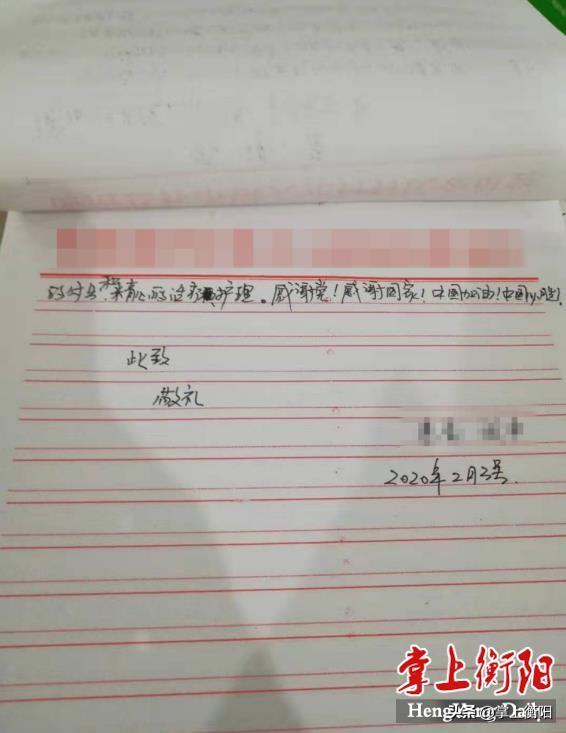 的付出 心的治疗护理。感谢党！感谢国家！中国加油！中国必胜！
此致
敬礼
2020年2月3号.
掌上衡阳
头条@掌上衡阳